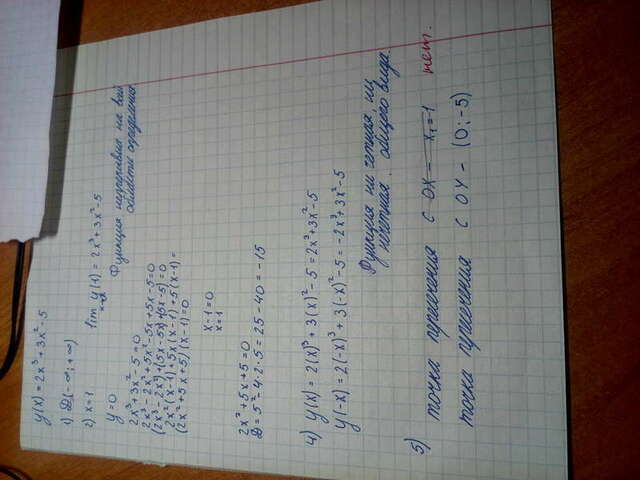 y(x) = 2x³ + 3x² - 5
1) D(-∞; +∞)
2) x = 1 lim y(1) = 2x³ + 3x² - 5
y = 0 Функция непрерывна на всей
области определения
2x³ + 3x² - 5 = 0
2x³ - 2x² + 5x² - 5x + 5x - 5 = 0
(2x³ - 2x²) + (5x - 5x) + (5x - 5) = 0
2x²(x - 1) + 5x(x - 1) + 5(x - 1) =
(2x² + 5x + 5)(x - 1) = 0
x - 1 = 0
x = 1
2x² + 5x + 5 = 0
D = 5² - 4·2·5 = 25 - 40 = -15
4) y(x) = 2(x)³ + 3(x)² - 5 = 2x³ + 3x² - 5
y(-x) = 2(-x)³ + 3(-x)² - 5 = -2x³ + 3x² - 5
Функция ни четная, ни
нечетная. общего вида.
5)
точка пересечения с OX - x₁ = 1 нет.
точка пересечения с OY - (0; -5)